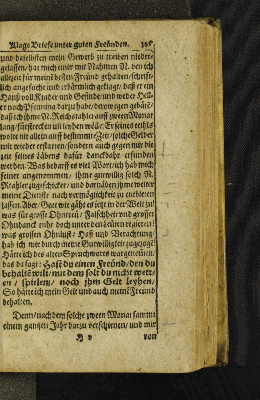 Klage Briefe unter guten Freunden. 305
und daselbsten mein Gewerb zu treiben nieder-
gelassen/ hat mich einer mit Nahmen N. den ich
allezeit für meinē besten Freünd gehalten/ schrift-
lich angesucht und erbärmlich geklagt/ daß er ein
Hauß voll Kinder und Gesinde/ und weder Hel-
ler noch Pfenning darzu habe/ derowegen gebätē/
daß ich ihme N. Reichsthaler auff zween Monat
lang/ fürstrecken uñ leyhen wöde: Er seines theils
wolte mir allein auff bestimmte Zeit/ solche Gelder
mir wieder erstatten/ sondern auch gegen mir die
zeit seines Lebens dafür danckbahr erfunden
werden. Was bedarff es viel Wort/ ich hab mich
seiner angenommen/ ihme gutwillig solch N.
Reahler zugeschicket/ und darnäben ihme weiter
meine Dienste nach vermöglichkeit zu entbieten
lassen. Aber/ Gott wie gähts es jetzt in der Welt zu!
was für grosse Untreü/ Falschheit und grosser
Ohndanck ruht doch unter den Leüten regieren!
was grossen Ohnlust/ Haß und Verachtung/
hab ich mir durch meine Gutwilligkeit zugezogē!
Hätte ich des alten Spruchworts wargenommen,
das da sagt: Hast du einen Freünd/ den du
behaltē wilt/ mit dem solt du nicht wett-
en/ spielen/ noch ihm Gelt leyhen,
So hätte ich mein Gelt und auch meinē Freünd
behalten.
Denn/ nach dem solche zween Monat sammt
einem gantzen Jahr darzu verschienen/ und mir
von